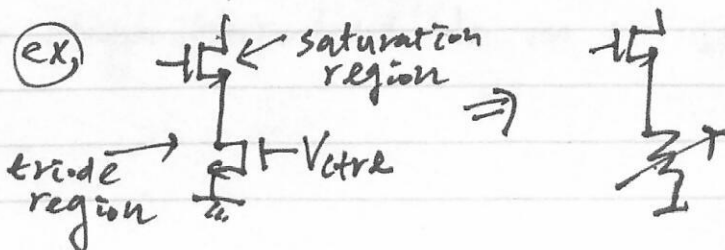 ex)
saturation
region
⇒
triode
region
Vctrl